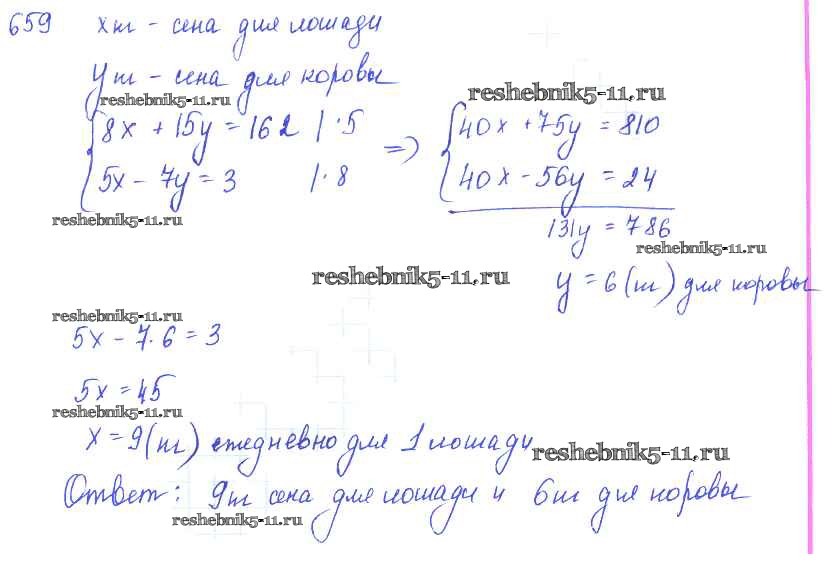 659 x т - сена для лошади
y т - сена для коровы
reshebnik5-11.ru
reshebnik5-11.ru
8x + 15y = 162 | · 5 => 40x + 75y = 810
5x - 7y = 3 | · 8 40x - 56y = 24
reshebnik5-11.ru
131y = 786
reshebnik5-11.ru
reshebnik5-11.ru
y = 6 (т) для коровы
reshebnik5-11.ru
5x - 7 · 6 = 3
5x = 45
reshebnik5-11.ru
x = 9 (т) ежедневно для 1 лошади
reshebnik5-11.ru
Ответ: 9т сена для лошади и 6т для коровы
reshebnik5-11.ru